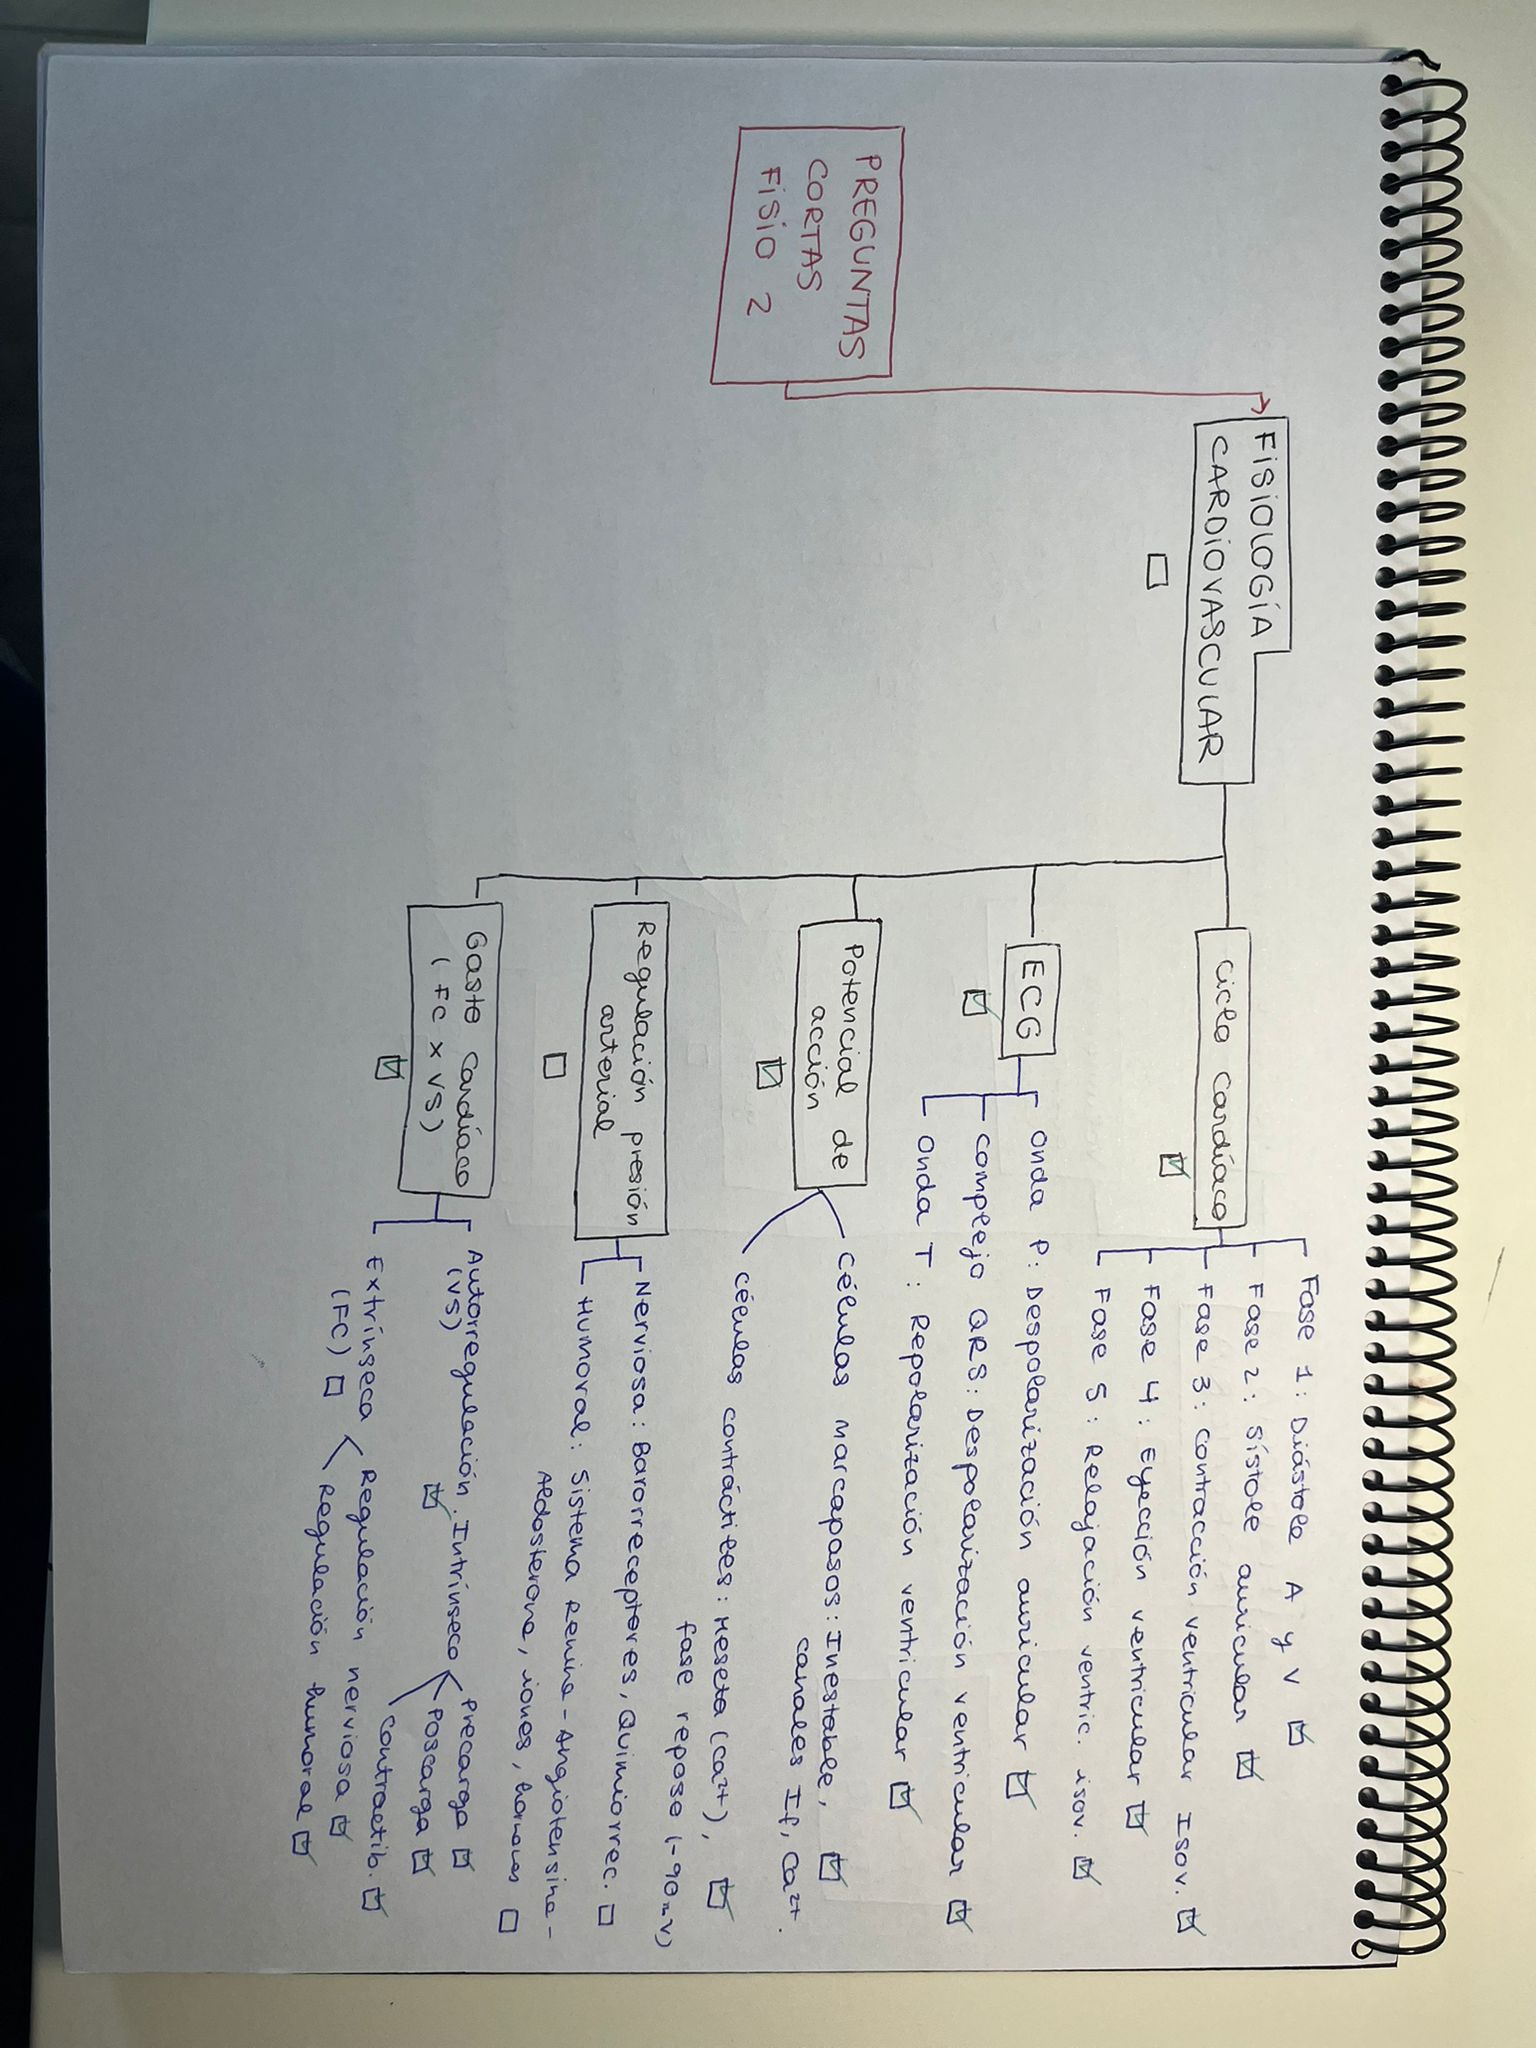 PREGUNTAS
CORTAS
FISIO 2
FISIOLOGÍA
CARDIOVASCULAR
Ciclo Cardíaco
Fase 1: Diástole A y V
Fase 2: Sístole auricular
Fase 3: Contracción ventricular Isov.
Fase 4: Eyección ventricular
Fase 5: Relajación ventric. isov.
ECG
Onda P: Despolarización auricular
Complejo QRS: Despolarización ventricular
Onda T: Repolarización ventricular
Potencial de
acción
Células marcapasos: Inestable,
canales If, Ca2+.
Células contráctiles: Meseta (Ca2+),
fase reposo (-90mV)
Regulación presión
arterial
Nerviosa: Barorreceptores, Quimiorrec.
Humoral: Sistema Renina-Angiotensina-
Aldosterona, iones,
Gasto Cardíaco
(FC x VS)
Autorregulación. Intrínseco
(VS)
Precarga
Poscarga
Contractib.
Extrínseca
(FC)
Regulación nerviosa
Regulación humoral